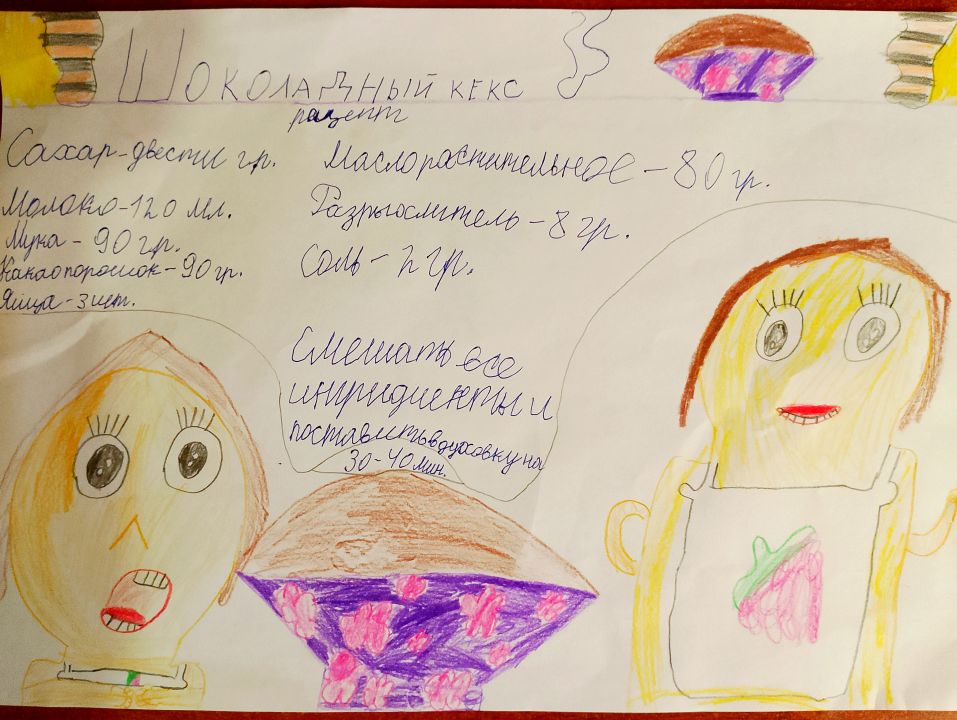 Шоколадный кекс
рацепт
Сахар-двести гр.
Молоко-120 мл.
Мука-90 гр.
Какаопорошок-90 гр.
Яйца-3 шт.
Масло растительное-80 гр.
Разрыхлитель-8 гр.
Соль-2 гр.
Смешать все
ингридиенты и
поставить в духовку на
30-40 мин.